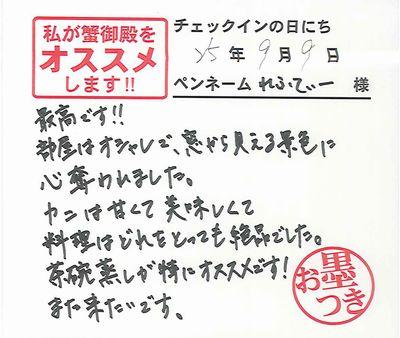 私が蟹御殿を
オススメ
します!!
チェックインの日にち
25年9月9日
ペンネーム れふてぃー 様
最高です!!
部屋はオシャレで、窓から見える景色に
心奪われました。
カニは甘くて美味しくて
料理はどれをとっても絶品でした。
茶碗蒸しが特にオススメです!
また来たいです。
お墨つき